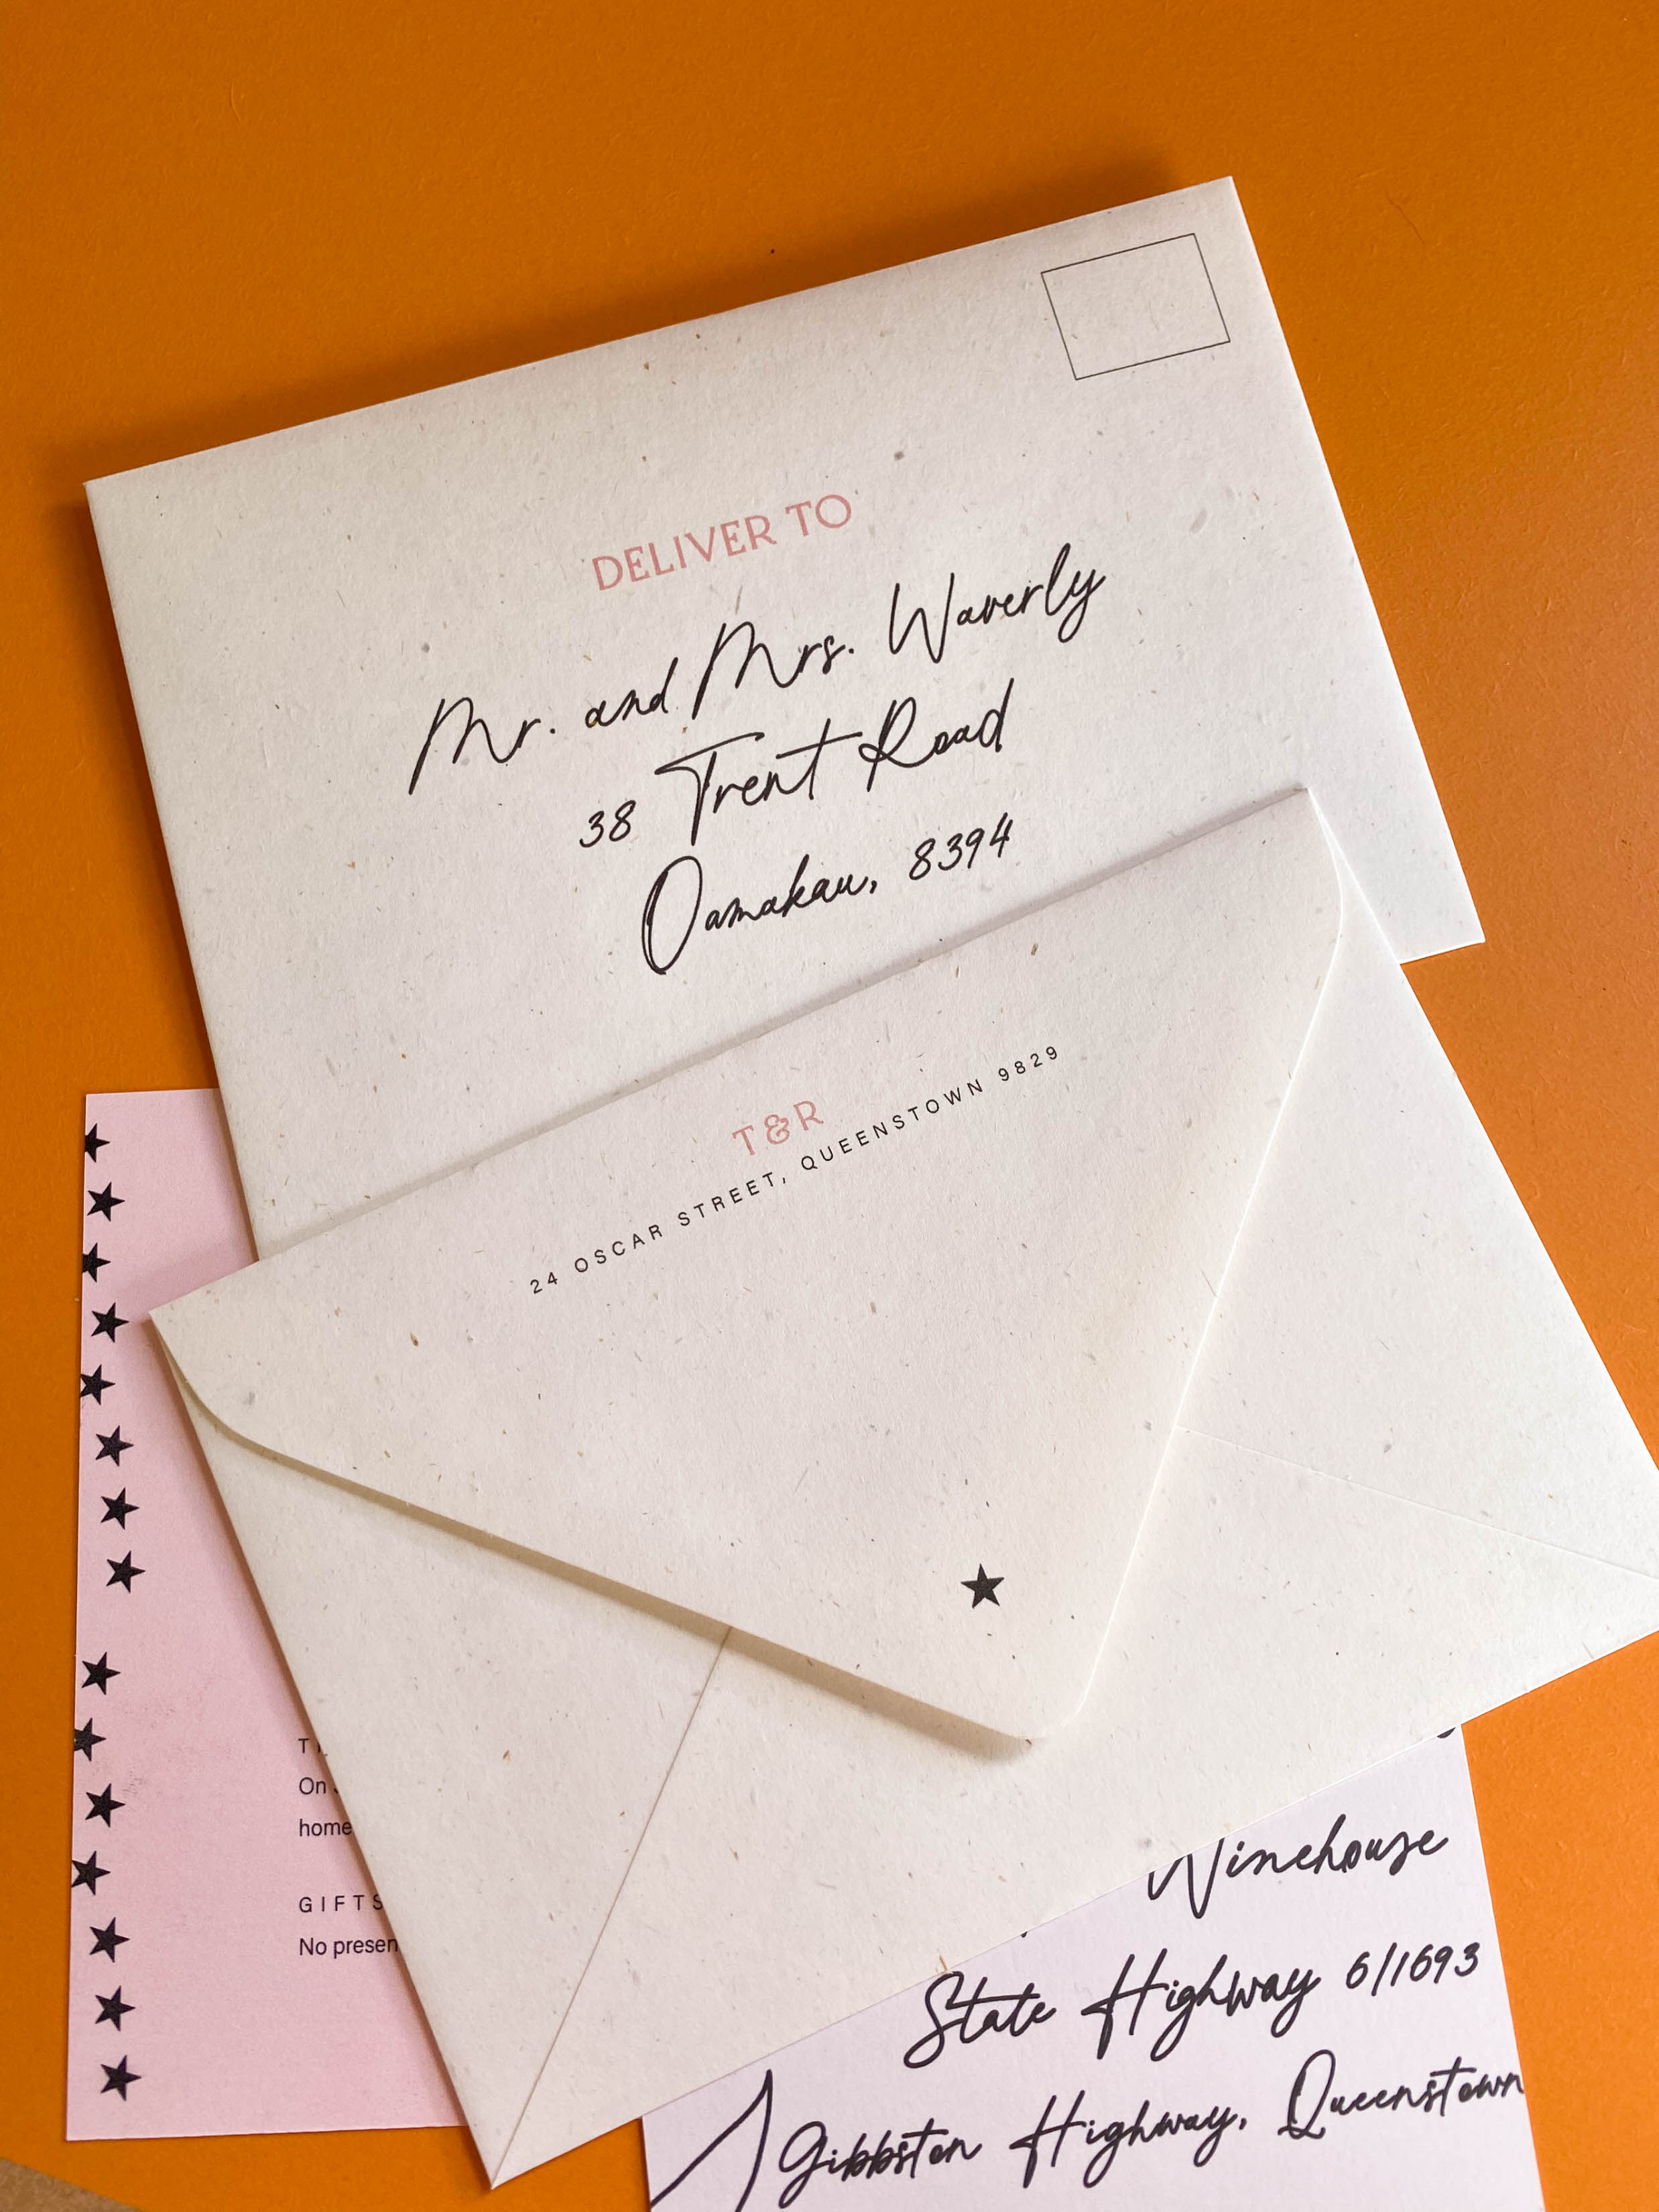 DELIVER TO
Mr. and Mrs. Waverly
38 Trent Road
Oamakau, 8394
T&R
24 OSCAR STREET, QUEENSTOWN 9829
On
home
GIFTS
No presen
Winehouse
State Highway 6/1693
Gibbston Highway, Queenstown